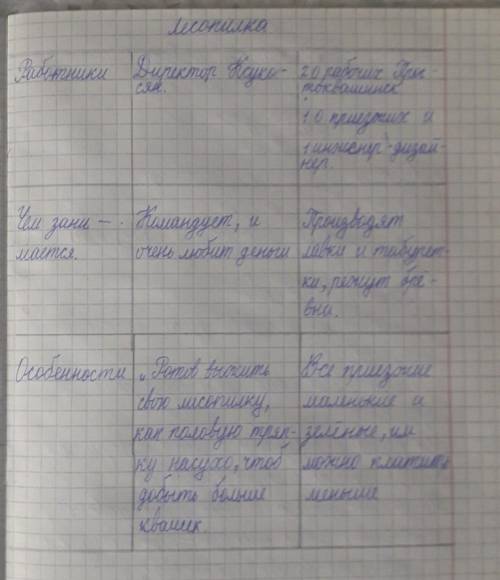 Лесопилка
Работники
Директор
сян.
20 рабочих Прос-
токвашинск
10 приезжих и
1 инженер-дизай-
нер.
Чем зани-
мается.
Командует, и
очень любит деньги
Производят
лавки и табурет-
ки, режут брё-
вна.
Особенности
„Готов выжить
свою лесопилку,
как половую тряп-
ку насухо, чтоб
добыть больше
квашек.
Все приезжие
маленькие и
зеленые, им
можно платить
меньше